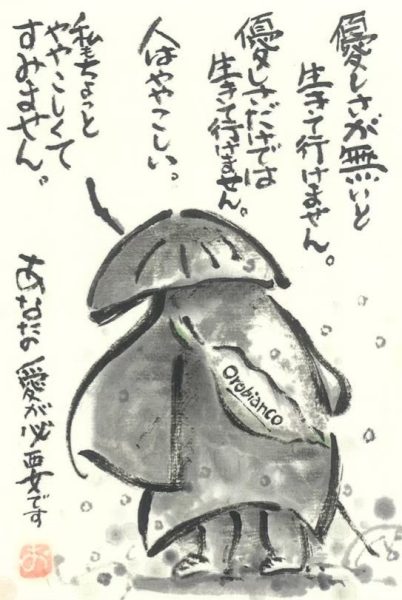 優しさが無いと
生きて行けません。
優しさだけでは
生きて行けません。
人はややこしい。
私もちょっと
ややこしくて
すみません。
あなたの愛が必要です
Orobianco
お